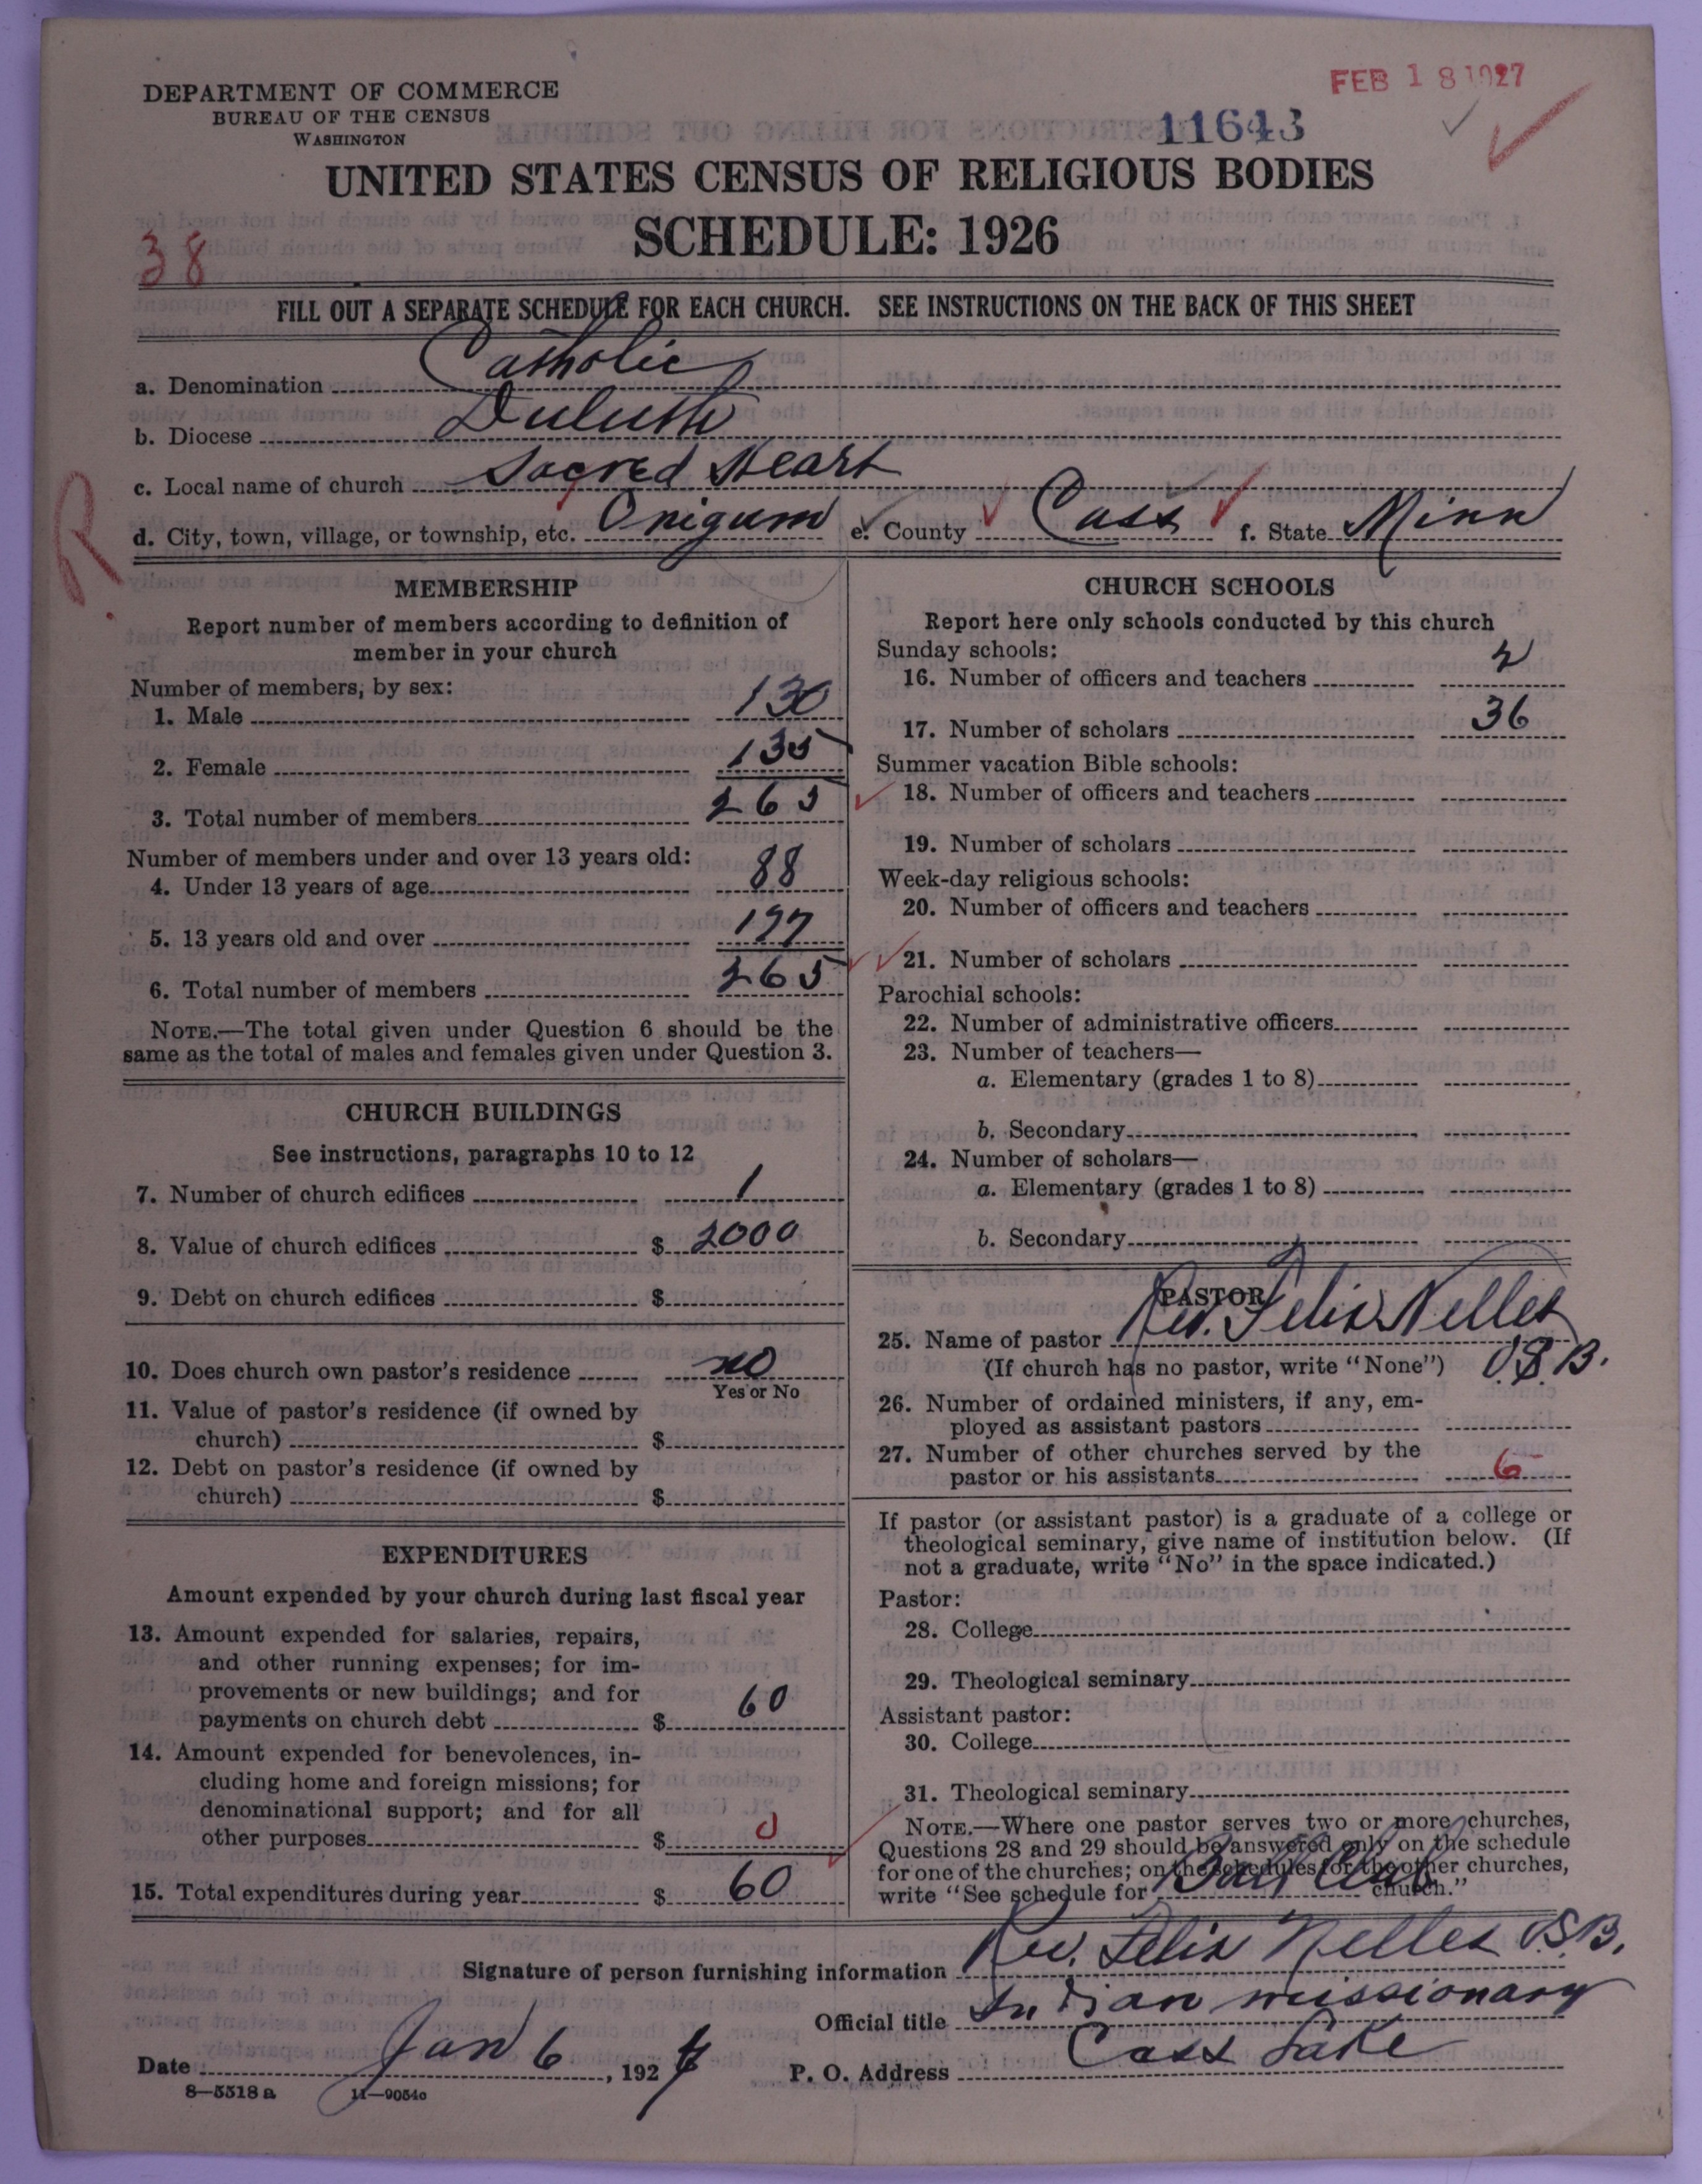 DEPARTMENT OF COMMERCE
BUREAU OF THE CENSUS
WASHINGTON
FEB 18 1927
11643
UNITED STATES CENSUS OF RELIGIOUS BODIES
SCHEDULE: 1926
38
FILL OUT A SEPARATE SCHEDULE FOR EACH CHURCH. SEE INSTRUCTIONS ON THE BACK OF THIS SHEET
a. Denomination Catholic
b. Diocese Duluth
c. Local name of church Sacred Heart
R
d. City, town, village, or township, etc. Onigum e. County Cass f. State Minn
MEMBERSHIP
Report number of members according to definition of
member in your church
Number of members, by sex:
1. Male 130
2. Female 135
3. Total number of members 265
Number of members under and over 13 years old:
4. Under 13 years of age 88
5. 13 years old and over 177
6. Total number of members 265
NOTE.—The total given under Question 6 should be the
same as the total of males and females given under Question 3.
CHURCH BUILDINGS
See instructions, paragraphs 10 to 12
7. Number of church edifices 1
8. Value of church edifices $ 2000
9. Debt on church edifices $
10. Does church own pastor's residence no
Yes or No
11. Value of pastor's residence (if owned by
church) $
12. Debt on pastor's residence (if owned by
church) $
EXPENDITURES
Amount expended by your church during last fiscal year
13. Amount expended for salaries, repairs,
and other running expenses; for im-
provements or new buildings; and for
payments on church debt $ 60
14. Amount expended for benevolences, in-
cluding home and foreign missions; for
denominational support; and for all
other purposes $ 0
15. Total expenditures during year $ 60
CHURCH SCHOOLS
Report here only schools conducted by this church
Sunday schools:
16. Number of officers and teachers 2
17. Number of scholars 36
Summer vacation Bible schools:
18. Number of officers and teachers
19. Number of scholars
Week-day religious schools:
20. Number of officers and teachers
21. Number of scholars
Parochial schools:
22. Number of administrative officers
23. Number of teachers—
a. Elementary (grades 1 to 8)
b. Secondary
24. Number of scholars—
a. Elementary (grades 1 to 8)
b. Secondary
PASTOR
25. Name of pastor Rev. Felix Nelles
(If church has no pastor, write "None") O.S.B.
26. Number of ordained ministers, if any, em-
ployed as assistant pastors
27. Number of other churches served by the
pastor or his assistants 6
If pastor (or assistant pastor) is a graduate of a college or
theological seminary, give name of institution below. (If
not a graduate, write "No" in the space indicated.)
Pastor:
28. College
29. Theological seminary
Assistant pastor:
30. College
31. Theological seminary
NOTE.—Where one pastor serves two or more churches,
Questions 28 and 29 should be answered only on the schedule
for one of the churches; on the schedules for the other churches,
write "See schedule for Ball Club church."
Signature of person furnishing information Rev. Felix Nelles O.S.B.
Official title Indian missionary
Date Jan 6, 1927 P. O. Address Cass Lake
8—5518 a 11—9054c